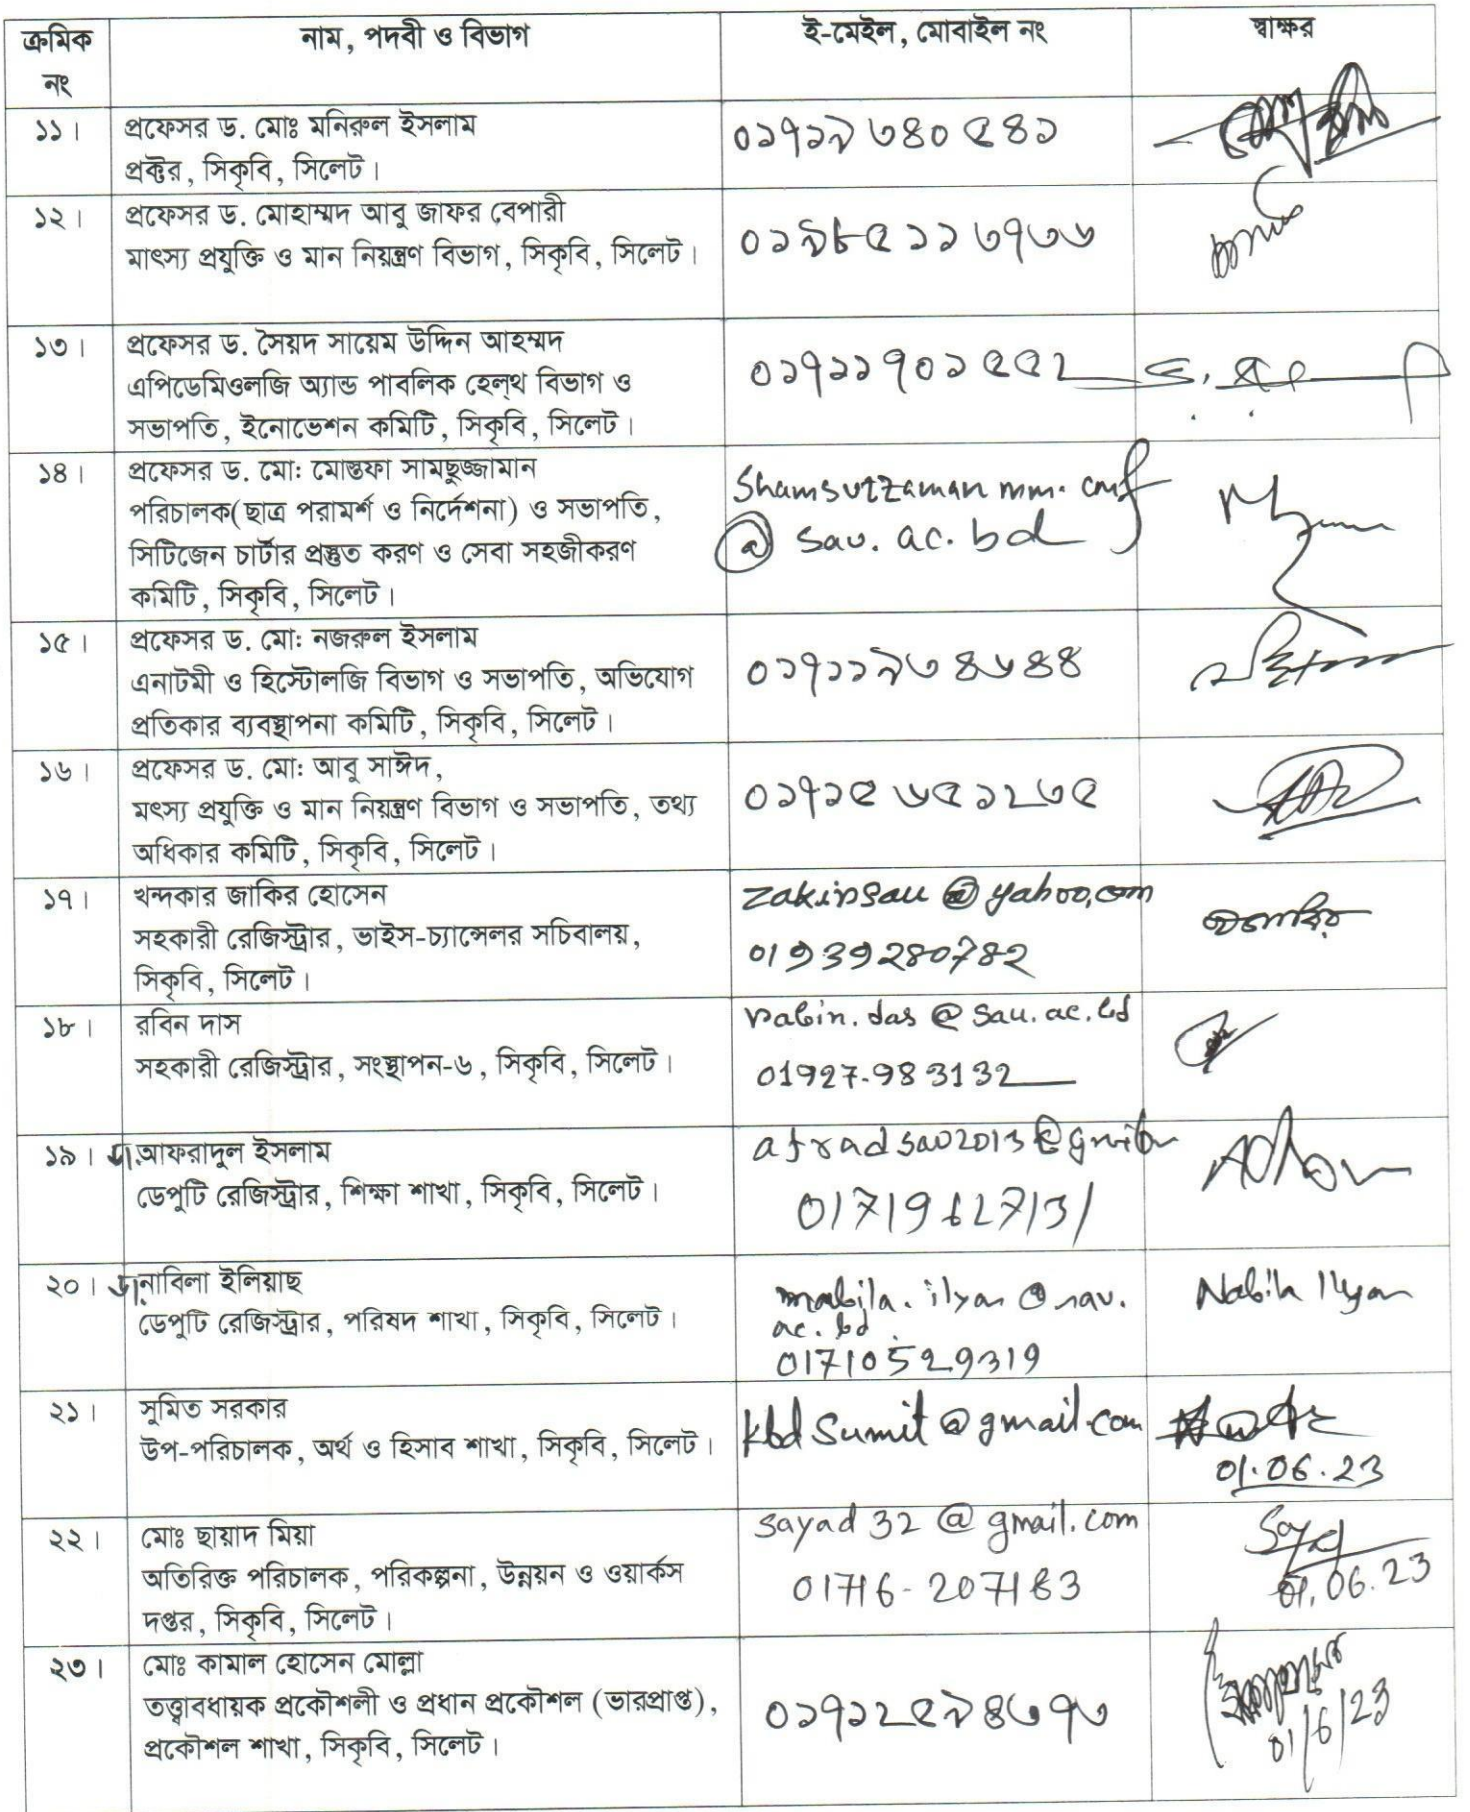 ক্রমিক নং	নাম, পদবী ও বিভাগ	ই-মেইল, মোবাইল নং	স্বাক্ষর
১১।	প্রফেসর ড. মোঃ মনিরুল ইসলাম
প্রক্টর, সিকৃবি, সিলেট।
০১৭১৯৩৪০৫৪১
১২।	প্রফেসর ড. মোহাম্মদ আবু জাফর বেপারী
মাৎস্য প্রযুক্তি ও মান নিয়ন্ত্রণ বিভাগ, সিকৃবি, সিলেট।
০১৯৮৫১১৩৭৩৬
১৩।	প্রফেসর ড. সৈয়দ সায়েম উদ্দিন আহম্মদ
এপিডেমিওলজি অ্যান্ড পাবলিক হেল্থ বিভাগ ও
সভাপতি, ইনোভেশন কমিটি, সিকৃবি, সিলেট।
০১৭১১৭০১৫৫২
১৪।	প্রফেসর ড. মো: মোস্তফা সামছুজ্জামান
পরিচালক(ছাত্র পরামর্শ ও নির্দেশনা) ও সভাপতি,
সিটিজেন চার্টার প্রস্তুত করণ ও সেবা সহজীকরণ
কমিটি, সিকৃবি, সিলেট।
@ sau. ac. bd
১৫।	প্রফেসর ড. মো: নজরুল ইসলাম
এনাটমী ও হিস্টোলজি বিভাগ ও সভাপতি, অভিযোগ
প্রতিকার ব্যবস্থাপনা কমিটি, সিকৃবি, সিলেট।
০১৭১১৯৩৪৬৪৪
১৬।	প্রফেসর ড. মো: আবু সাঈদ,
মৎস্য প্রযুক্তি ও মান নিয়ন্ত্রণ বিভাগ ও সভাপতি, তথ্য
অধিকার কমিটি, সিকৃবি, সিলেট।
০১৭১৫৬৫১২৩৫
১৭।	খন্দকার জাকির হোসেন
সহকারী রেজিস্ট্রার, ভাইস-চ্যান্সেলর সচিবালয়,
সিকৃবি, সিলেট।
zakirsau @ yahoo.com
01939280782
১৮।	রবিন দাস
সহকারী রেজিস্ট্রার, সংস্থাপন-৬, সিকৃবি, সিলেট।
rabin. das @ sau. ac. bd
01927-983132
১৯।	ডা. আফরাদুল ইসলাম
ডেপুটি রেজিস্ট্রার, শিক্ষা শাখা, সিকৃবি, সিলেট।
01719627131
২০।	ডা. নাবিলা ইলিয়াছ
ডেপুটি রেজিস্ট্রার, পরিষদ শাখা, সিকৃবি, সিলেট।
ac. bd
01710529319
Nabila Ilyas
২১।	সুমিত সরকার
উপ-পরিচালক, অর্থ ও হিসাব শাখা, সিকৃবি, সিলেট।
kbd sumit @ gmail.com
01.06.23
২২।	মোঃ ছায়াদ মিয়া
অতিরিক্ত পরিচালক, পরিকল্পনা, উন্নয়ন ও ওয়ার্কস
দপ্তর, সিকৃবি, সিলেট।
sayad 32 @ gmail. com
01716-207183
01.06.23
২৩।	মোঃ কামাল হোসেন মোল্লা
তত্ত্বাবধায়ক প্রকৌশলী ও প্রধান প্রকৌশল (ভারপ্রাপ্ত),
প্রকৌশল শাখা, সিকৃবি, সিলেট।
০১৭১২৫৯৪৩৭৩
01/6/23